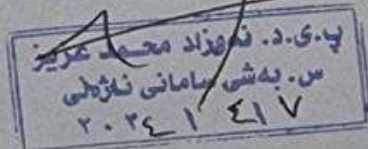 پ.ی.د. نەوزاد محمد عزیز
س. بەشی سامانی نەژەلی
٢٠٢٤ / ٤ / ١٧